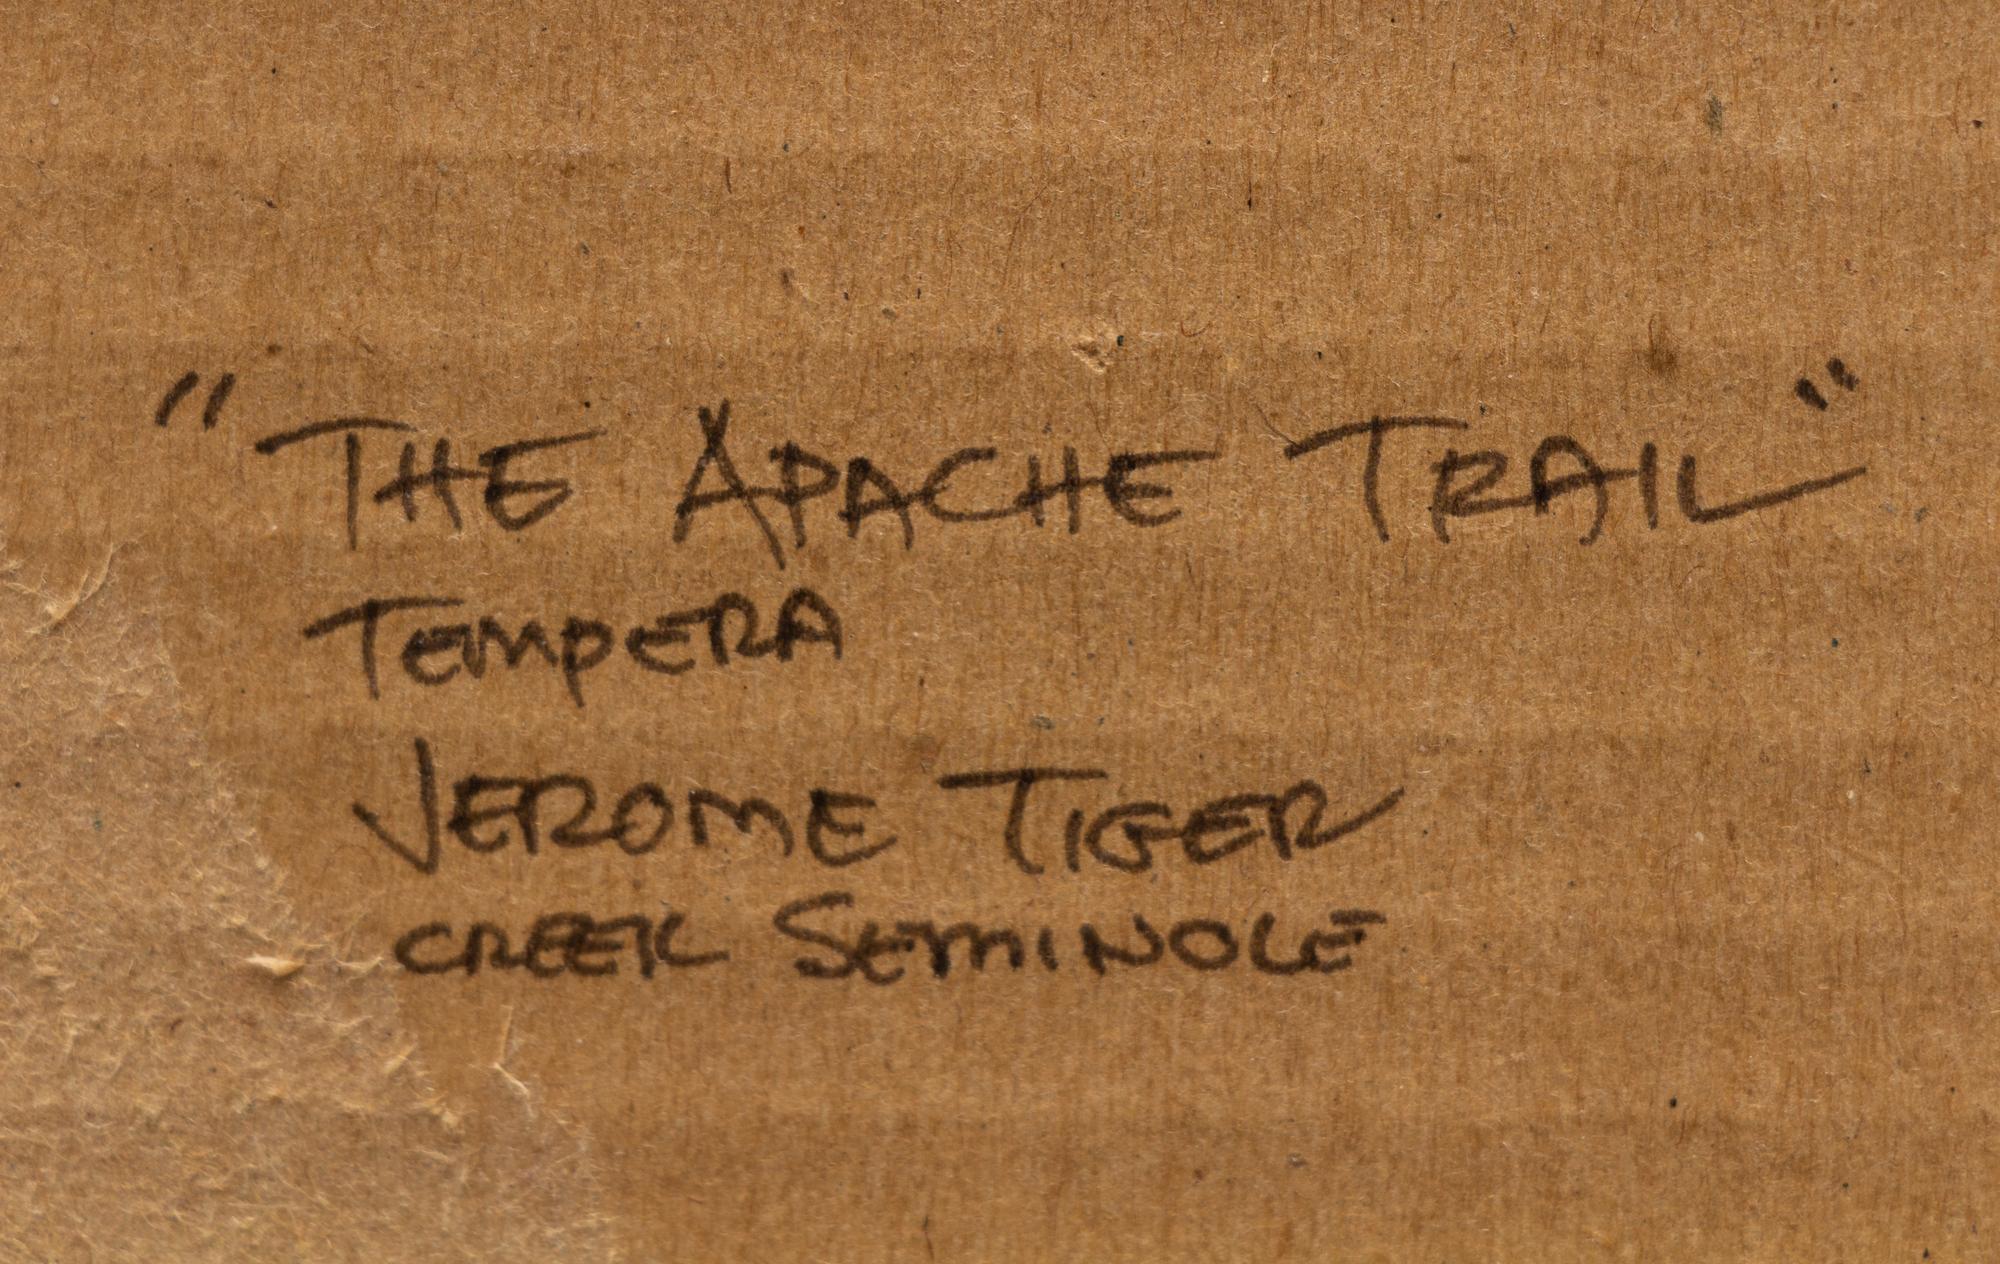 "THE APACHE TRAIL"
TEMPERA
JEROME TIGER
CREEK SEMINOLE